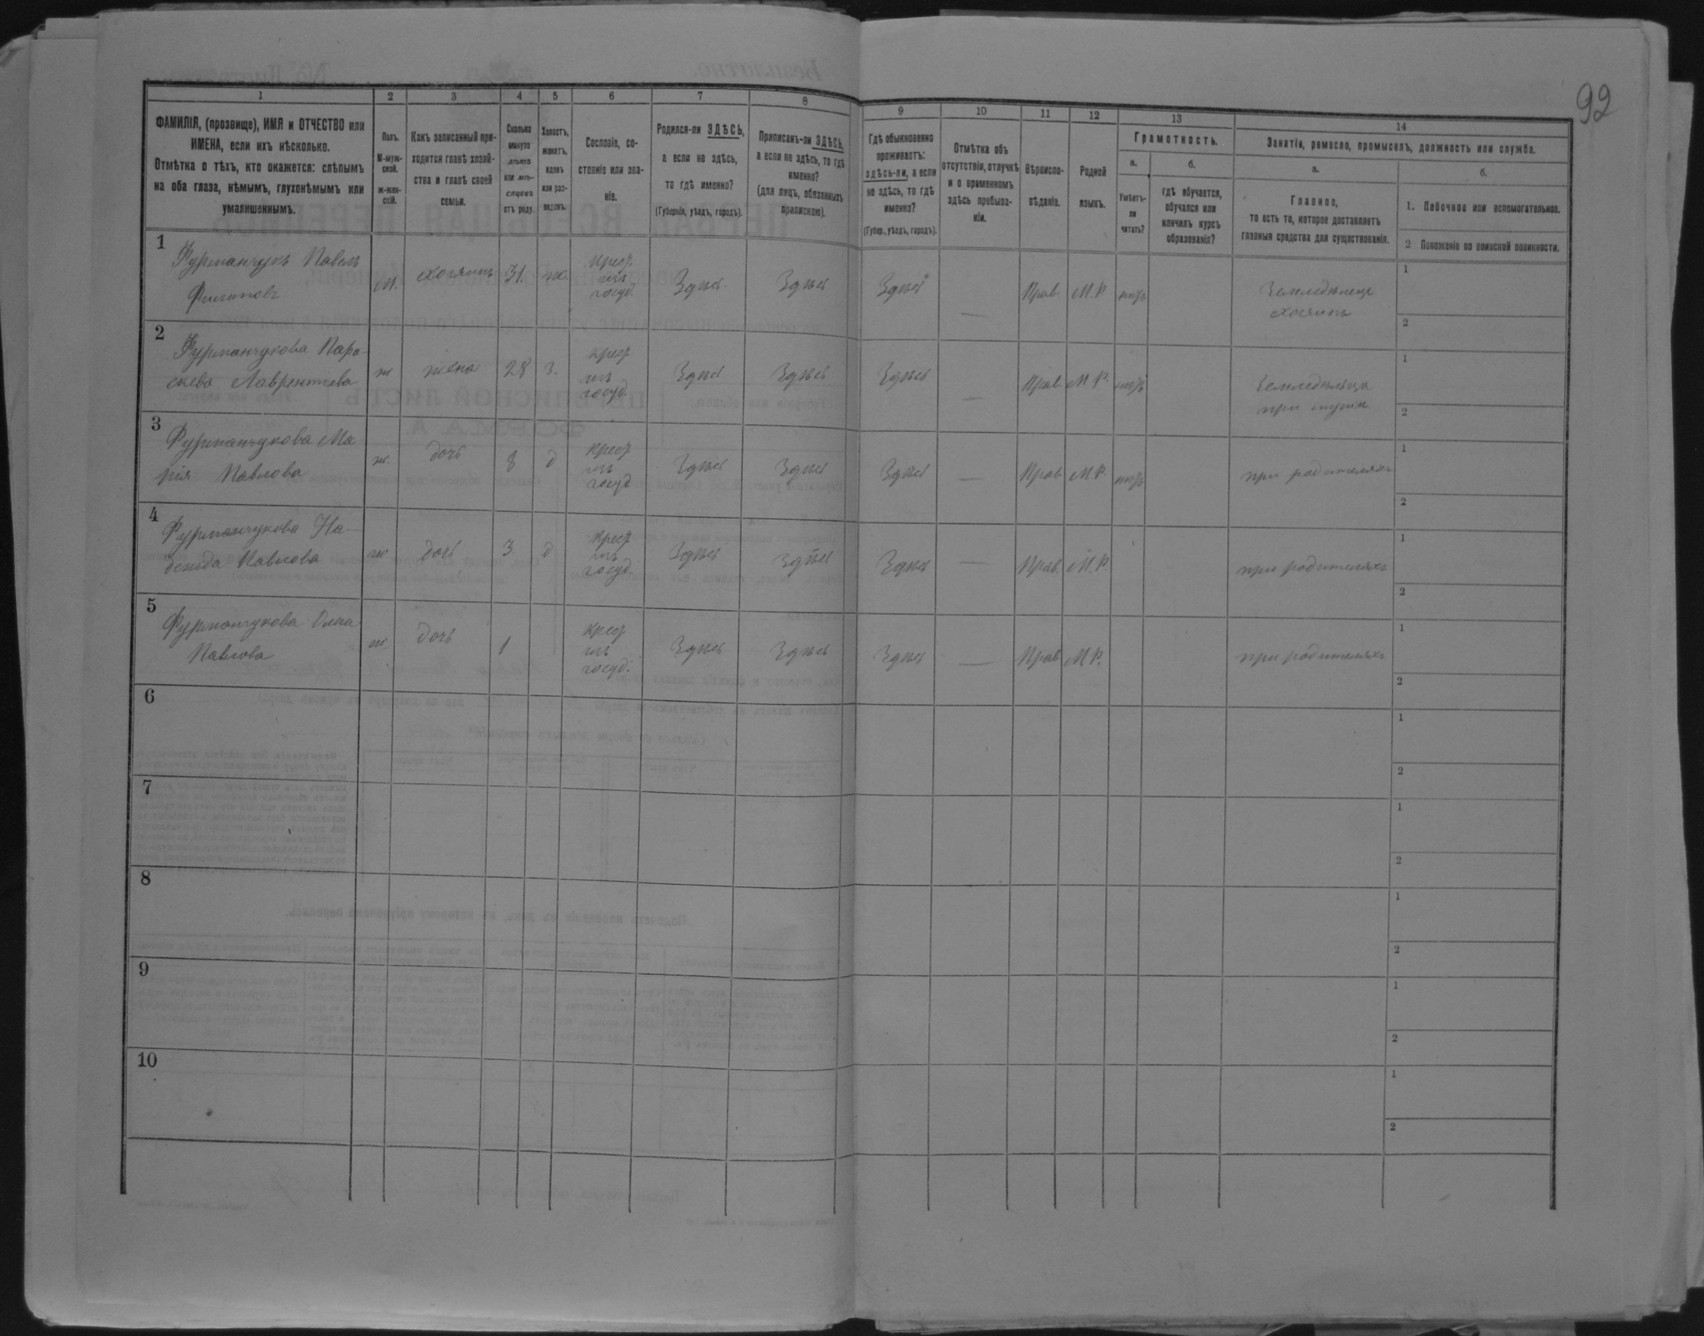 92
1 2 3 4 5 6 7 8 9 10 11 12 13 14
ФАМИЛІЯ, (прозвище), ИМЯ и ОТЧЕСТВО или
ИМЕНА, если ихъ нѣсколько.
Отмѣтка о тѣхъ, кто окажется: слѣпымъ
на оба глаза, нѣмымъ, глухонѣмымъ или
умалишеннымъ.
Полъ.
М-муж-
ской.
Ж-жен-
скій.
Какъ записанный при-
ходится главѣ хозяй-
ства и главѣ своей
семьи.
Сколько
минуло
лѣтъ
или мѣ-
сяцевъ
отъ роду.
Холостъ,
женатъ,
вдовъ
или раз-
веденъ.
Сословіе, со-
стояніе или зва-
ніе.
Родился-ли ЗДѢСЬ,
а если не здѣсь,
то гдѣ именно?
(Губернія, уѣздъ, городъ).
Приписанъ-ли ЗДѢСЬ,
а если не здѣсь, то гдѣ
именно?
(для лицъ, обязанныхъ
припискою).
Гдѣ обыкновенно
проживаетъ:
здѣсь-ли, а если
не здѣсь, то гдѣ
именно?
(Губер., уѣздъ, городъ).
Отмѣтка объ
отсутствіи, отлучкѣ
и о временномъ
здѣсь пребыва-
ніи.
Вѣроиспо-
вѣданіе.
Родной
языкъ.
Грамотность.
а.
Умѣетъ-
ли
читать?
б.
гдѣ обучается,
обучался или
кончилъ курсъ
образованія?
Занятіе, ремесло, промыселъ, должность или служба.
а.
Главное,
то есть то, которое доставляетъ
главныя средства для существованія.
б.
1. Побочное или вспомогательное.
2 Положеніе по воинской повинности.
1
Фурманчукъ Павелъ
Филиповъ
м.
хозяинъ
31
ж.
крест.
изъ
госуд.
Здѣсь
Здѣсь
Здѣсь
—
Прав.
М.Р.
нѣтъ
Земледѣлецъ
хозяинъ
1
2
2
Фурманчукова Пара-
скева Лаврентіева
ж
жена
28
з.
крест
изъ
госуд.
Здѣсь
Здѣсь
Здѣсь
—
Прав.
М.Р.
нѣтъ
Земледѣльца
при мужѣ
1
2
3
Фурманчукова Ма
рія Павлова
ж.
дочь
8
д
крест
изъ
госуд
Здѣсь
Здѣсь
Здѣсь
—
Прав
М.Р.
нѣтъ
при родителяхъ
1
2
4
Фурманчукова На-
дежда Павлова
ж
дочь
3
д
крест
изъ
госуд
Здѣсь
Здѣсь
Здѣсь
—
Прав.
М.Р.
при родителяхъ
1
2
5
Фурманчукова Ольга
Павлова
ж
дочь
1
крест
изъ
госуд.
Здѣсь
Здѣсь
Здѣсь
—
Прав
М.Р.
при родителяхъ
1
2
6
1
2
7
1
2
8
1
2
9
1
2
10
1
2